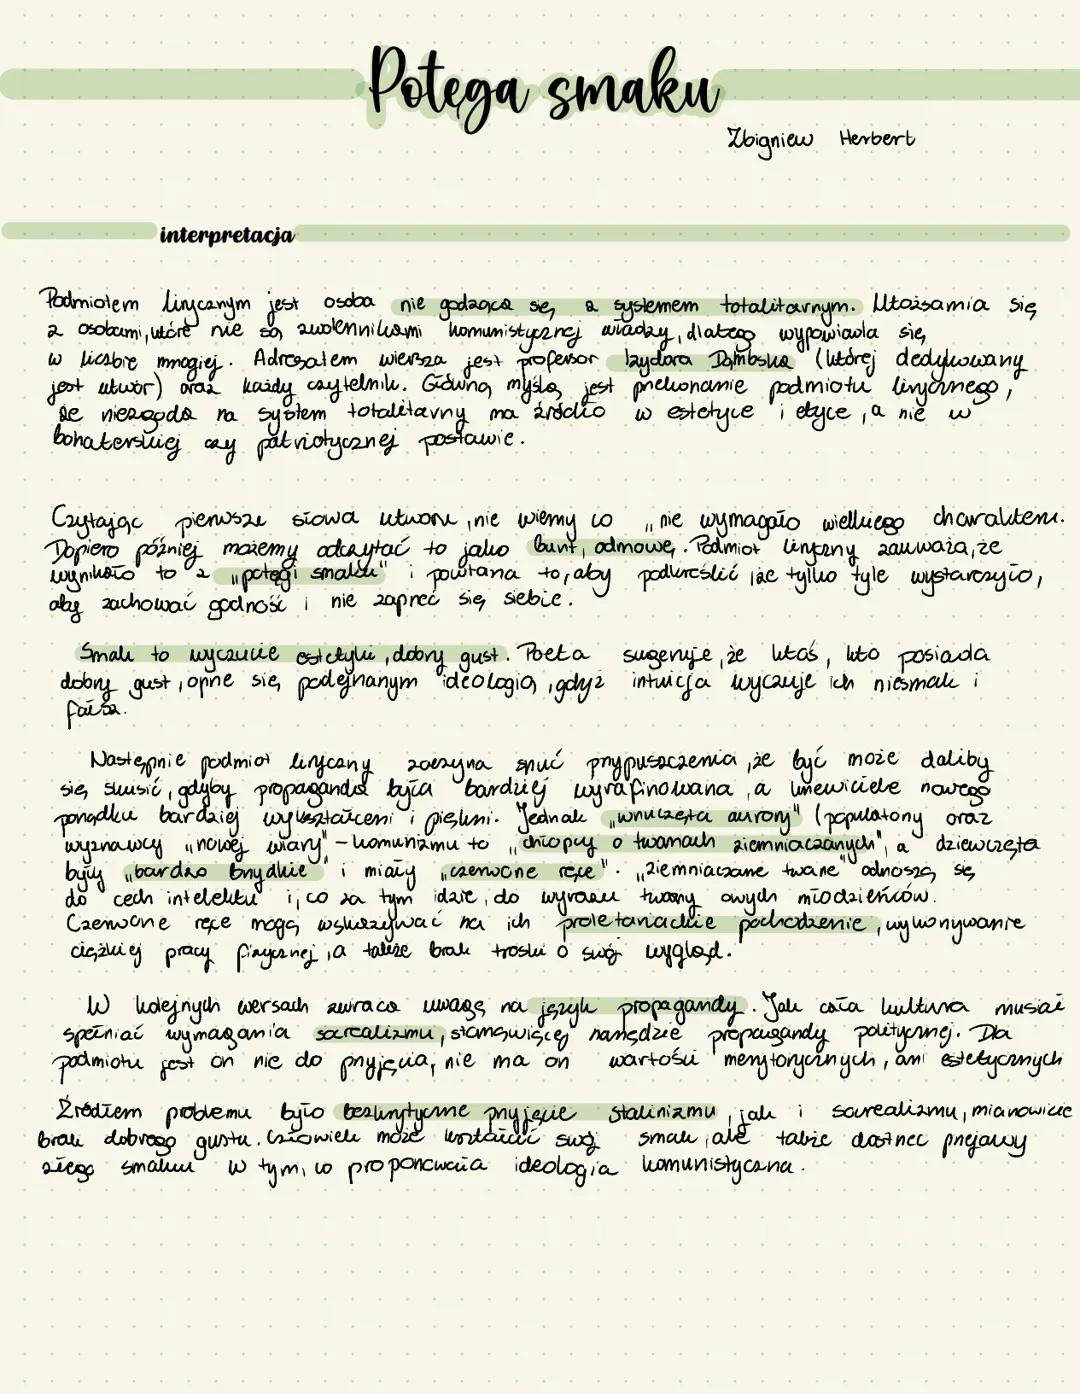 Potęga smaku
Zbigniew Herbert
interpretacja
Podmiotem lirycznym jest osoba nie godząca się z systemem totalitarnym. Utożsamia się
z osobami, które nie są zwolennikami komunistycznej władzy, dlatego wypowiada się
w liczbie mnogiej. Adresatem wiersza jest profesor Izydora Dąmbska (której dedykowany
jest utwór) oraz każdy czytelnik. Główną myślą jest przekonanie podmiotu lirycznego,
że niezgoda na system totalitarny ma źródło w estetyce i etyce, a nie w
bohaterskiej czy patriotycznej postawie.
Czytając pierwsze słowa utworu, nie wiemy co „nie wymagało wielkiego charakteru.
Dopiero później możemy odczytać to jako bunt, odmowę. Podmiot liryczny zauważa, że
wynikało to z „potęgi smaku" i powtarza to, aby podkreślić, że tylko tyle wystarczyło,
aby zachować godność i nie zaprzeć się siebie.
Smak to wyczucie estetyki, dobry gust. Poeta sugeruje, że ktoś, kto posiada
dobry gust, oprze się podejrzanym ideologią, gdyż intuicja wyczuje ich niesmak i
fałsz.
Następnie podmiot liryczny zaczyna snuć przypuszczenia, że być może daliby
się skusić, gdyby propaganda była bardziej wyrafinowana, a krzewiciele nowego
porządku bardziej wykształceni i piękni. Jednak „wnuczęta aurory" (popularony oraz
wyznawcy „nowej wiary" - komunizmu to „chłopcy o twarzach ziemniaczanych", a dziewczęta
były „bardzo brzydkie" i miały „czerwone ręce". „Ziemniaczane twarze" odnoszą się
do cech intelektu i, co za tym idzie, do wyrazu twarzy owych młodzieńców.
Czerwone ręce mogą wskazywać na ich proletariackie pochodzenie, wykonywanie
ciężkiej pracy fizycznej, a także brak troski o swój wygląd.
W kolejnych wersach zwraca uwagę na język propagandy. Jak cała kultura musiał
spełniać wymagania socrealizmu, stanowiącej narzędzie propagandy politycznej. Dla
podmiotu jest on nie do przyjęcia, nie ma on wartości merytorycznych, ani estetycznych
Źródłem problemu było bezkrytyczne przyjęcie stalinizmu, jak i socrealizmu, mianowicie
brak dobrego gustu. Człowiek może kształcić swój smak, ale także dostrzec przejawy
złego smaku w tym, co proponowała ideologia komunistyczna.